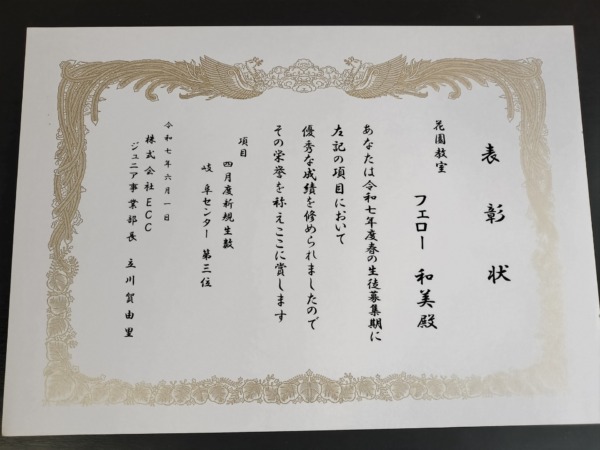 表彰状
花園教室
フェロー 和美殿
あなたは令和七年度春の生徒募集期に
左記の項目において
優秀な成績を修められましたので
その栄誉を称えここに賞します
項目
四月度新規生数
岐阜センター 第三位
令和七年六月一日
株式会社ECC
ジュニア事業部長 立川賀由里